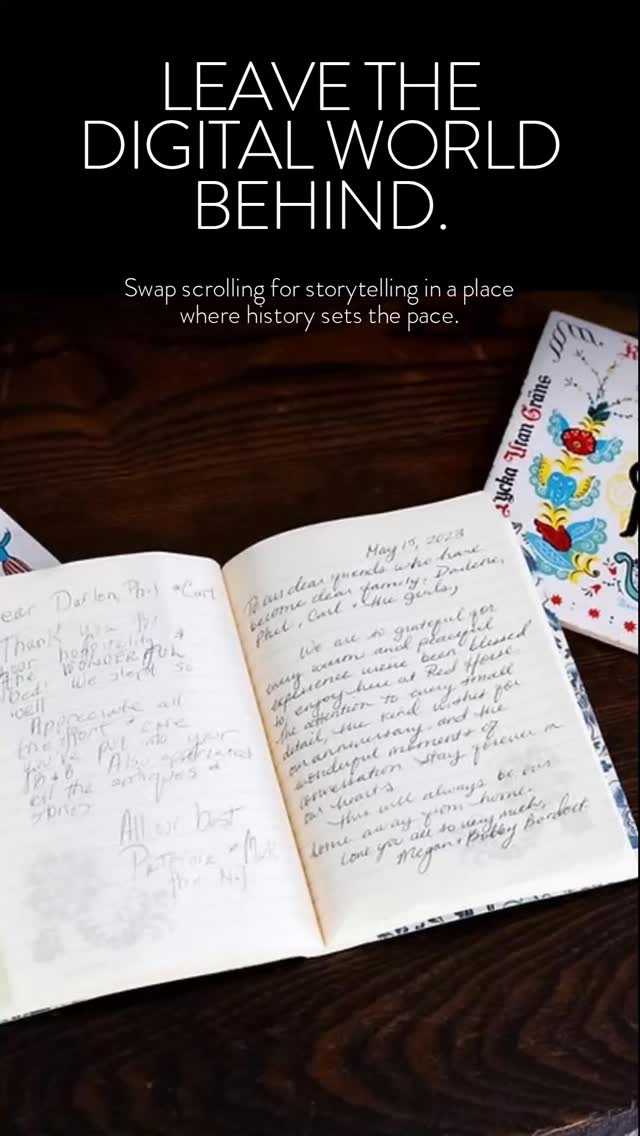 LEAVE THE
DIGITAL WORLD
BEHIND.
Swap scrolling for storytelling in a place
where history sets the pace.
Lycka Utan Gräns
ear Darlen, Phil & Carl
Thank you for
your hospitality &
the WONDERFUL
bed! We slept so
well
Appreciate all
the effort & care
you've put into your
B & B. Also appreciated
all the antiques &
stories
All our best
Patricia & Mark
May 15, 2023
To our dear friends who have
become dear family: Darlene,
Phil, Carl & the girls,
We are so grateful for
every warm and peaceful
experience we've been blessed
to enjoy here at Red Horse.
The attention to every small
detail, the kind wishes for
our anniversary, and the
wonderful moments of
conversation stay forever in
our hearts.
This will always be our
home away from home.
Love you all so very much,
Megan & Bobby